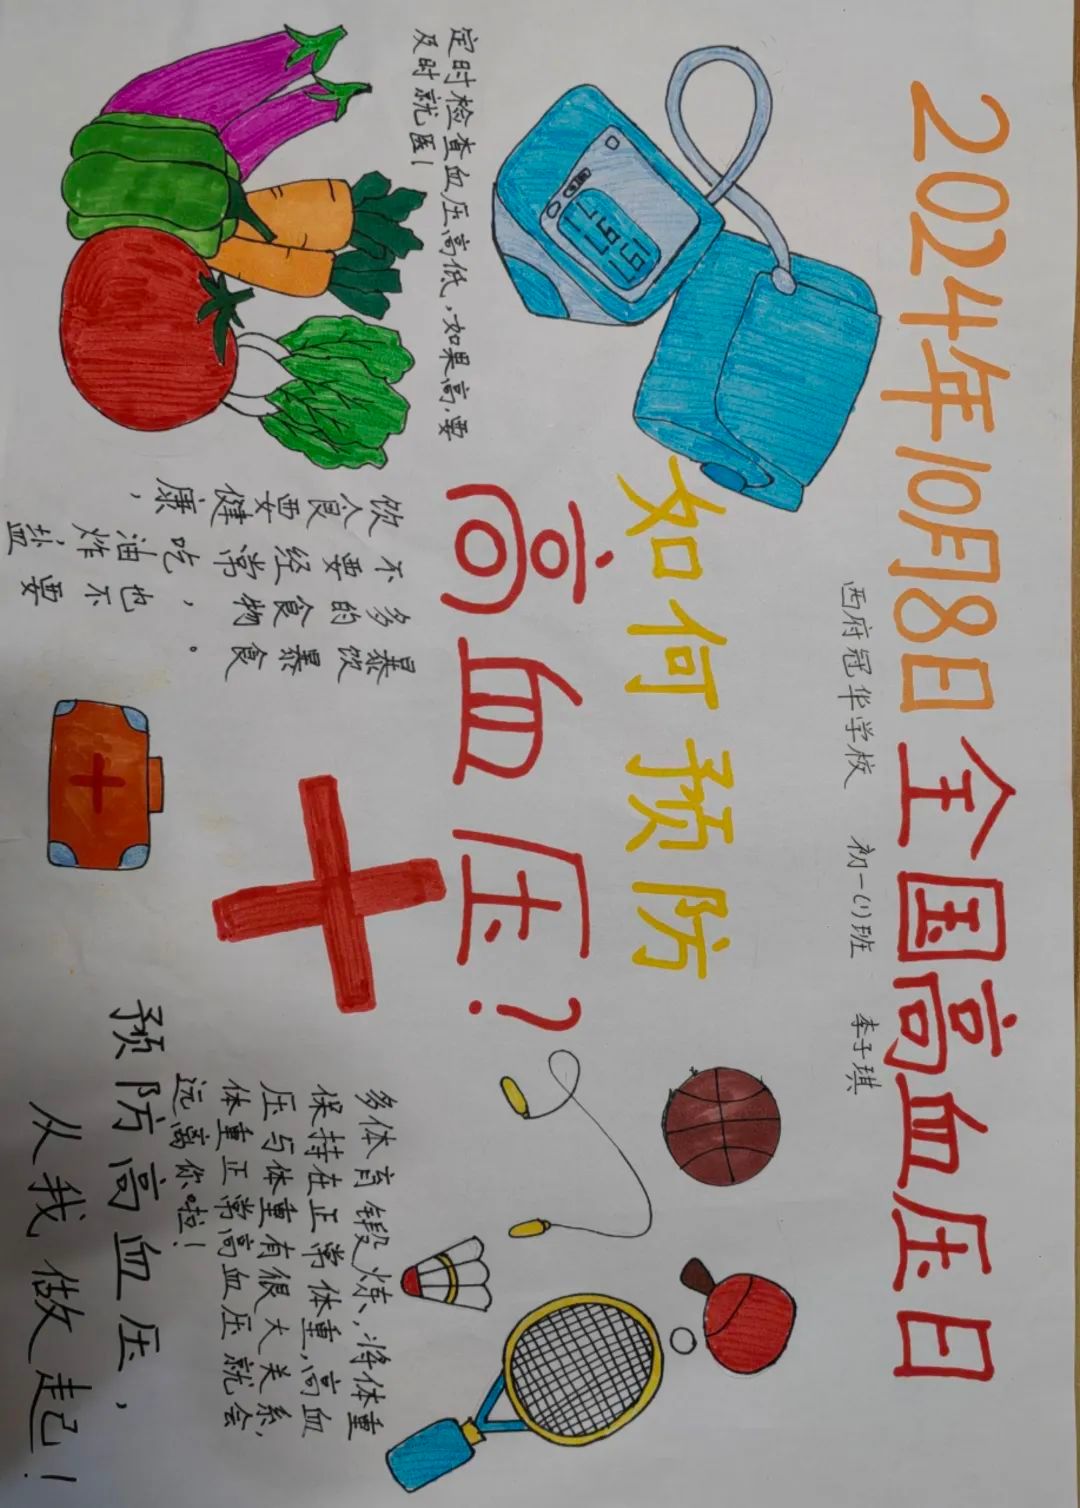 2024年10月8日全国高血压日
西府冠华学校 初一(1)班 李子琪
如何预防
高血压?
定时检查血压高低,如果高,要
及时就医!
饮食要健康,
不要经常吃油炸盐
多的食物,也不要
暴饮暴食。
多体育锻炼,将体重
保持在正常体重,高血
压与体重有很大关系,
体重正常高血压就会
远离你啦!
预防高血压,
从我做起!